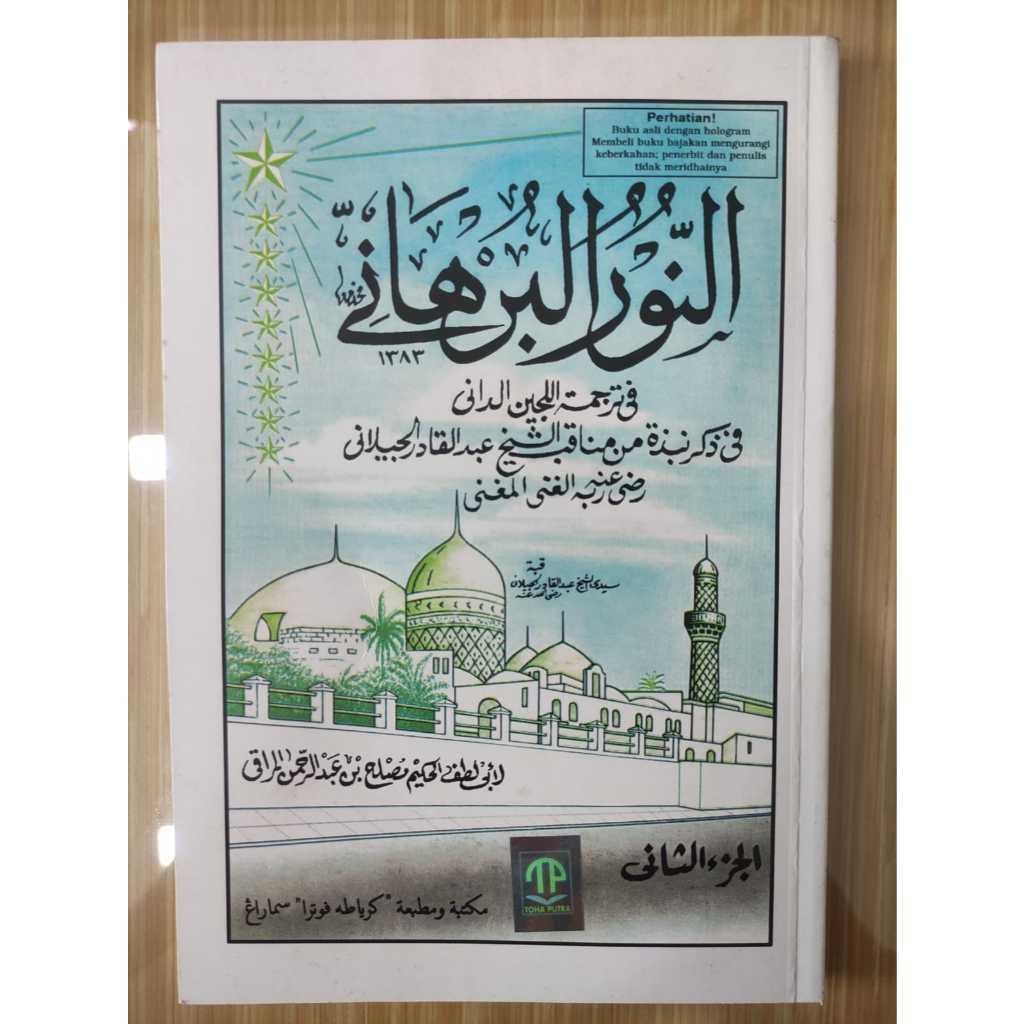 Perhatian!
Buku asli dengan hologram
Membeli buku bajakan mengurangi
keberkahan; penerbit dan penulis
tidak meridhainya
النُّوْرُ البُرْهَانِيّ
١٣٨٣
فى ترجمة اللجين الدانى
فى ذكر نبذة من مناقب الشيخ عبد القادر الجيلانى
رضي عنه ربه الغنى المغنى
قبة
سيدى الشيخ عبد القادر الجيلانى
رضى الله عنه
لأبى لطف الحكيم مصلح بن عبد الرحمن المراقى
الجزء الثانى
TOHA PUTRA
مكتبة ومطبعة "كرياطه فوترا" سماراڠ